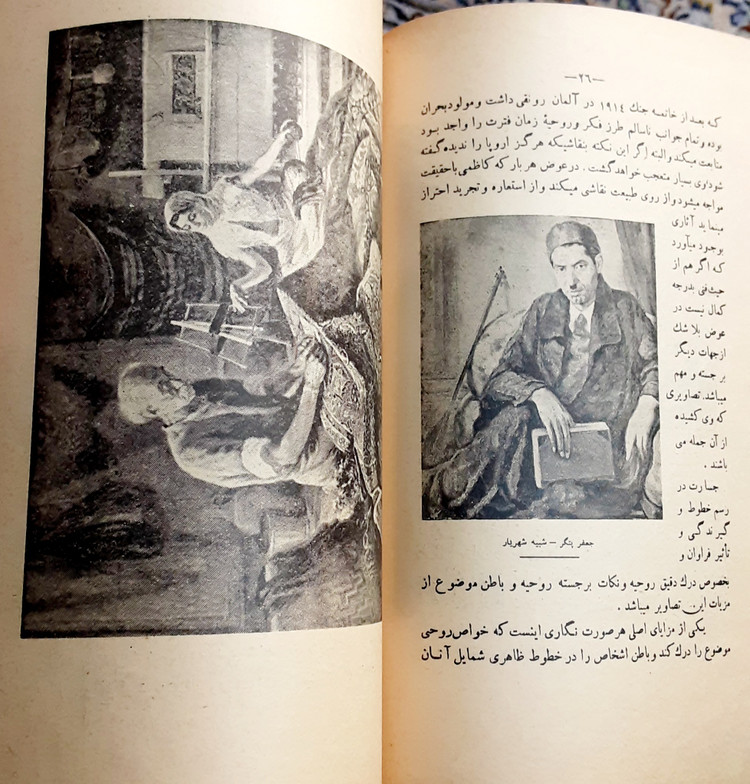 —۲٦—
که بعد از خاتمه جنك ۱۹۱٤ در آلمان رونقی داشت و مولود بحران
بوده و تمام جوانب ناسالم طرز فکر و روحیهٔ زمان فترت را واجد بود
متابعت میکند و البته اگر این نکته بنقاشیکه هرگز اروپا را ندیده گفته
شود وی بسیار متعجب خواهد گشت . در عوض هر بار که کاظمی با حقیقت
مواجه میشود و از روی طبیعت نقاشی میکند و از استعاره و تجرید احتراز
مینماید آثاری
بوجود میآورد
که اگر هم از
حیث فنی بدرجه
کمال نیست در
عوض بلا شك
از جهات دیگر
برجسته و مهم
میباشد. تصاویری
که وی کشیده
از آن جمله می
باشند .
جسارت در
رسم خطوط و
گیرندگی و
تأثیر فراوان و
جعفر پتگر – شبیه شهریار
بخصوص درك دقیق روحیه و نکات برجسته روحیه و باطن موضوع از
مزیات این تصاویر میباشد .
یکی از مزایای اصلی هر صورت نگاری اینست که خواص روحی
موضوع را درك کند و باطن اشخاص را در خطوط ظاهری شمایل آنان